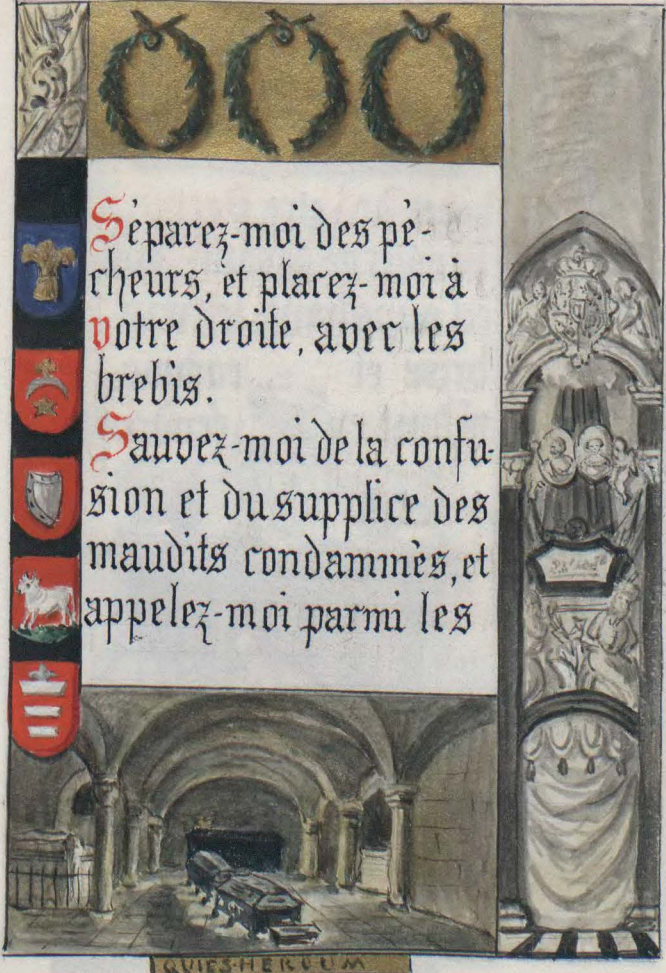 Séparez-moi des pé-
cheurs, et placez-moi à
votre droite, avec les
brebis.
Sauvez-moi de la confu-
sion et du supplice des
maudits condamnés, et
appelez-moi parmi les
QUIES·HEROUM